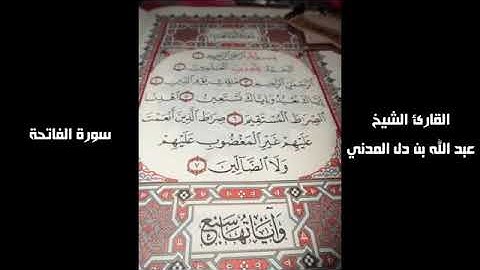 القارئ الشيخ
عبد الله بن دل المدني
سورة الفاتحة
بِسْمِ اللَّهِ الرَّحْمَٰنِ الرَّحِيمِ ١
الْحَمْدُ لِلَّهِ رَبِّ الْعَالَمِينَ ٢
الرَّحْمَٰنِ الرَّحِيمِ ٣ مَالِكِ يَوْمِ الدِّينِ ٤
إِيَّاكَ نَعْبُدُ وَإِيَّاكَ نَسْتَعِينُ ٥ اهْدِنَا
الصِّرَاطَ الْمُسْتَقِيمَ ٦ صِرَاطَ الَّذِينَ أَنْعَمْتَ
عَلَيْهِمْ غَيْرِ الْمَغْضُوبِ عَلَيْهِمْ
وَلَا الضَّالِّينَ ٧
وَآيَاتُهَا سَبْعٌ